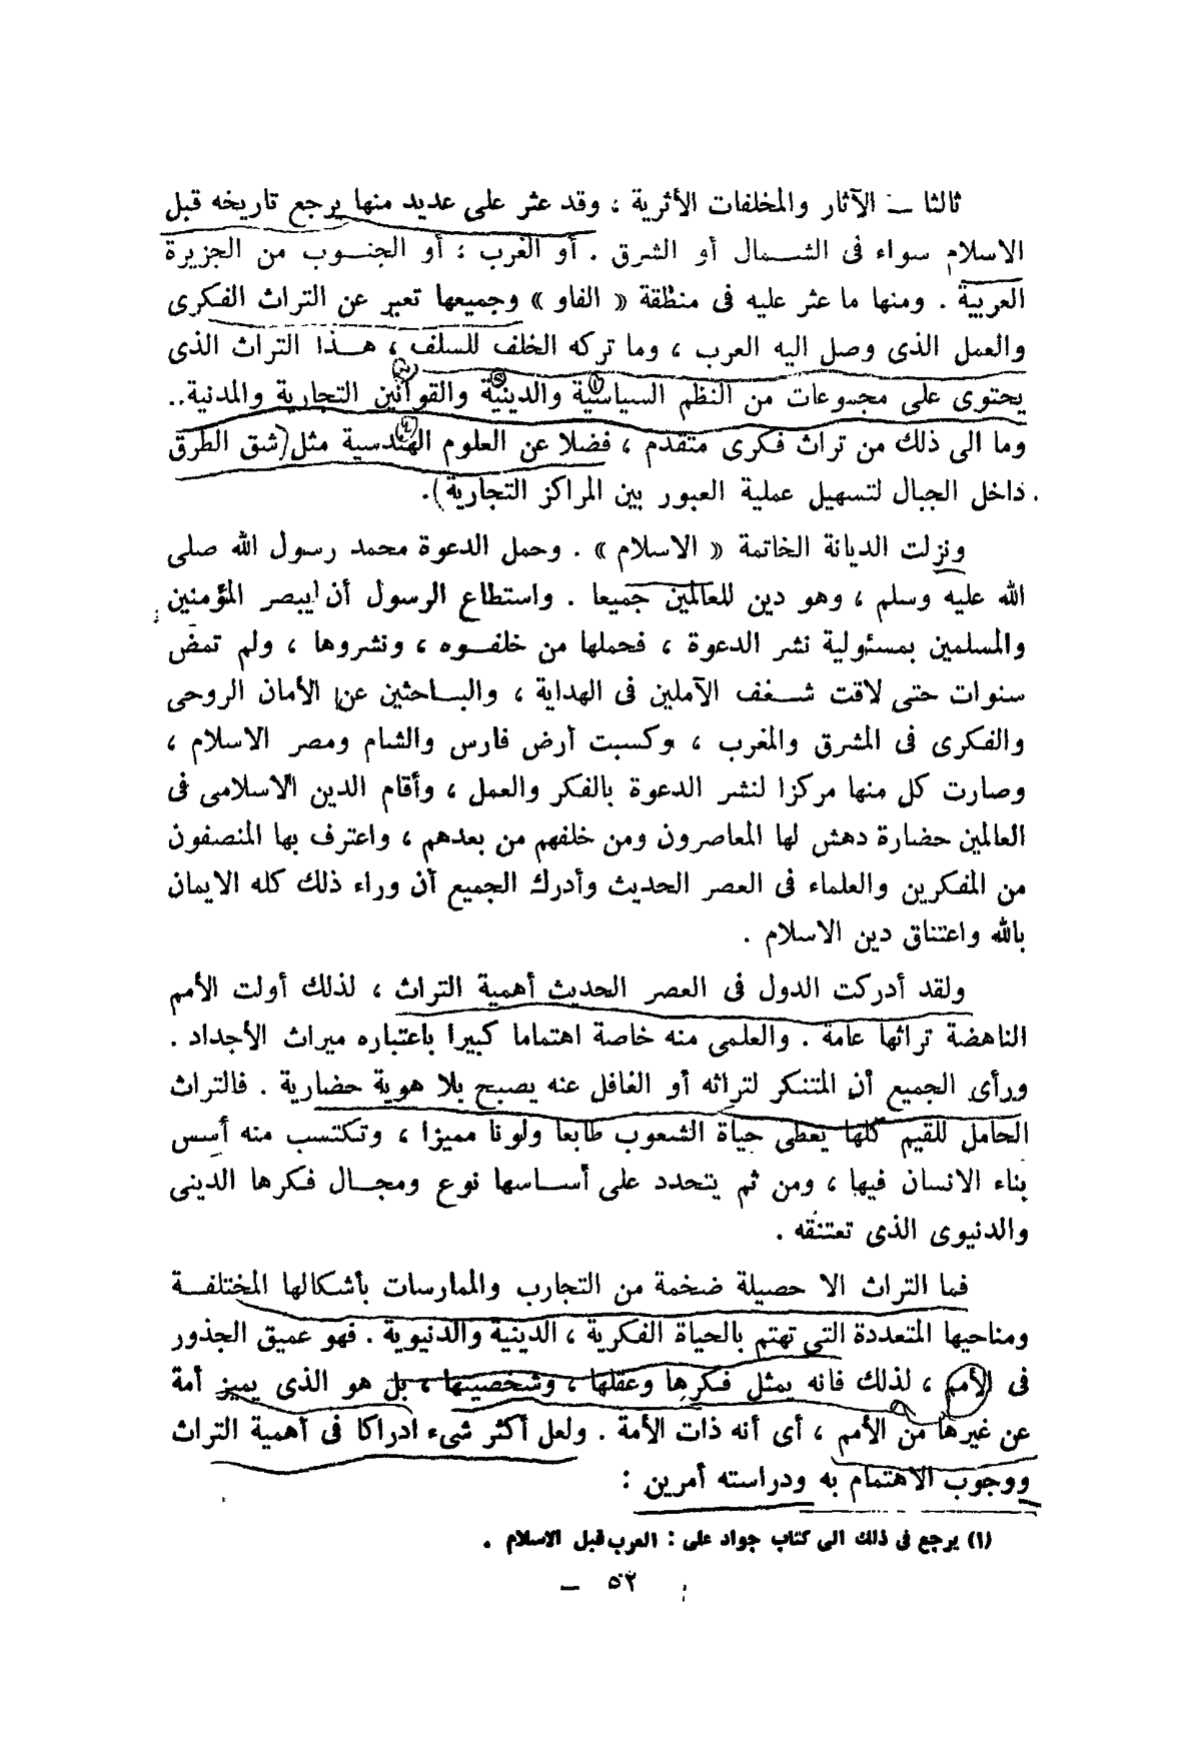 ثالثا — الآثار والمخلفات الأثرية ، وقد عثر على عديد منها يرجع تاريخه قبل
الاسلام سواء فى الشمال أو الشرق . أو الغرب ؛ أو الجنوب من الجزيرة
العربية . ومنها ما عثر عليه فى منطقة « الفاو » وجميعها تعبر عن التراث الفكرى
والعمل الذى وصل اليه العرب ، وما تركه الخلف للسلف ، هذا التراث الذى
يحتوى على مجموعات من النظم السياسية والدينية والقوانين التجارية والمدنية..
وما الى ذلك من تراث فكرى متقدم ، فضلا عن العلوم الهندسية مثل (شق الطرق
داخل الجبال لتسهيل عملية العبور بين المراكز التجارية).
ونزلت الديانة الخاتمة « الاسلام » . وحمل الدعوة محمد رسول الله صلى
الله عليه وسلم ، وهو دين للعالمين جميعا . واستطاع الرسول أن يبصر المؤمنين
والمسلمين بمسئولية نشر الدعوة ، فحملها من خلفوه ، ونشروها ، ولم تمض
سنوات حتى لاقت شغف الآملين فى الهداية ، والباحثين عن الأمان الروحى
والفكرى فى المشرق والمغرب ، وكسبت أرض فارس والشام ومصر الاسلام ،
وصارت كل منها مركزا لنشر الدعوة بالفكر والعمل ، وأقام الدين الاسلامى فى
العالمين حضارة دهش لها المعاصرون ومن خلفهم من بعدهم ، واعترف بها المنصفون
من المفكرين والعلماء فى العصر الحديث وأدرك الجميع أن وراء ذلك كله الايمان
بالله واعتناق دين الاسلام .
ولقد أدركت الدول فى العصر الحديث أهمية التراث ، لذلك أولت الأمم
الناهضة تراثها عامة . والعلمى منه خاصة اهتماما كبيرا باعتباره ميراث الأجداد .
ورأى الجميع أن المتنكر لتراثه أو الغافل عنه يصبح بلا هوية حضارية . فالتراث
الحامل للقيم كلها يعطى حياة الشعوب طابعا ولونا مميزا ، وتكتسب منه أسس
بناء الانسان فيها ، ومن ثم يتحدد على أساسها نوع ومجال فكرها الدينى
والدنيوى الذى تعتنقه .
فما التراث الا حصيلة ضخمة من التجارب والممارسات بأشكالها المختلفة
ومناحيها المتعددة التى تهتم بالحياة الفكرية ، الدينية والدنيوية . فهو عميق الجذور
فى الأمم ، لذلك فانه يمثل فكرها وعقلها ، وشخصيتها ، بل هو الذى يميز أمة
عن غيرها من الأمم ، أى أنه ذات الأمة . ولعل أكثر شىء ادراكا فى أهمية التراث
ووجوب الاهتمام به ودراسته أمرين :
(١) يرجع فى ذلك الى كتاب جواد على : العرب قبل الاسلام .
٥٢ —